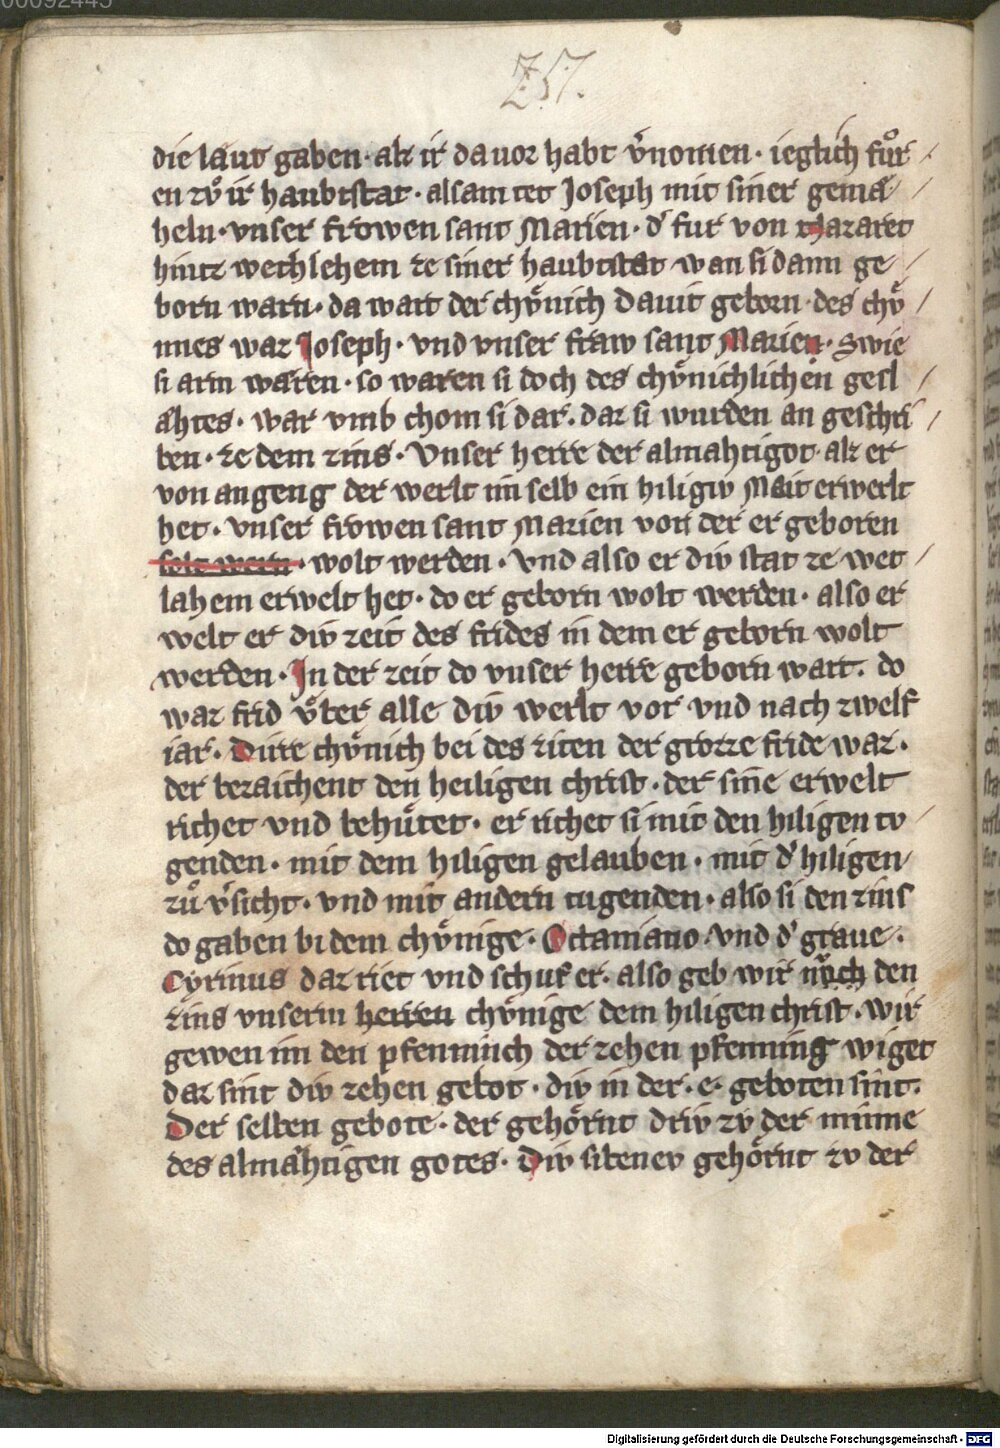 00092445
257.
die laut gaben · alz ir da uor habt v̾nomen · ieglich fůr /
en zv̊ ir haubtstat · alsam tet Joseph mit siner gema /
heln · vnser frowen sant Marien · d̾ fur von Nazaret
hintz wethlehem ze siner haubtstat wan si dann ge /
born warn · da wart der chv̊nich Dauit geborn · des chv̊ /
nnes war Joseph · vnd vnser fraw sant Marien · Swie
si arm waren · so waren si doch des chv̊nichlichen gesl /
ähtes · war vmb chom si dar · daz si wurden an geschri /
ben · ze dem zins · Vnser herre der almahtigot alz er
von angeng der werlt im selb ein hiligiv Mait erwerlt
het · vnser frowen sant Marien von der er geboren
solt wern · wolt werden · vnd also er div stat ze wet /
lahem erwelt het · do er geborn wolt werden · also er
welt er div zeit des frides in dem er geborn wolt
werden · In der zeit do vnser herre geborn wart · do
waz frid v̊ber alle div werlt vor vnd nach zwelf
iar · Dirre chv̊nich bei des ziten der grozze fride waz ·
der bezaichent den heiligen christ · der sine erwelt
richet vnd behůtet · er richet si mit den hiligen tv /
genden · mit dem hiligen gelauben · mit d̾ hiligen /
zů v̾siht · vnd mit andern tugenden · also si den zins
do gaben bi dem chv̊nige · Octaniano vnd d̾ graue ·
Cyrinus daz riet vnd schuf er · also geb wir noch den
zins vnserm herren chv̊nige dem hiligen christ · wir
gewen im den pfenninch der zehen pfenning wiget
daz sint div zehen gebot · div in der · e · geboten sint ·
Der selben gebote · der gehôrnt driv zv der minne
des almähtigen gotes · Div sibenev gehôrnt zv der
Digitalisierung gefördert durch die Deutsche Forschungsgemeinschaft - DFG